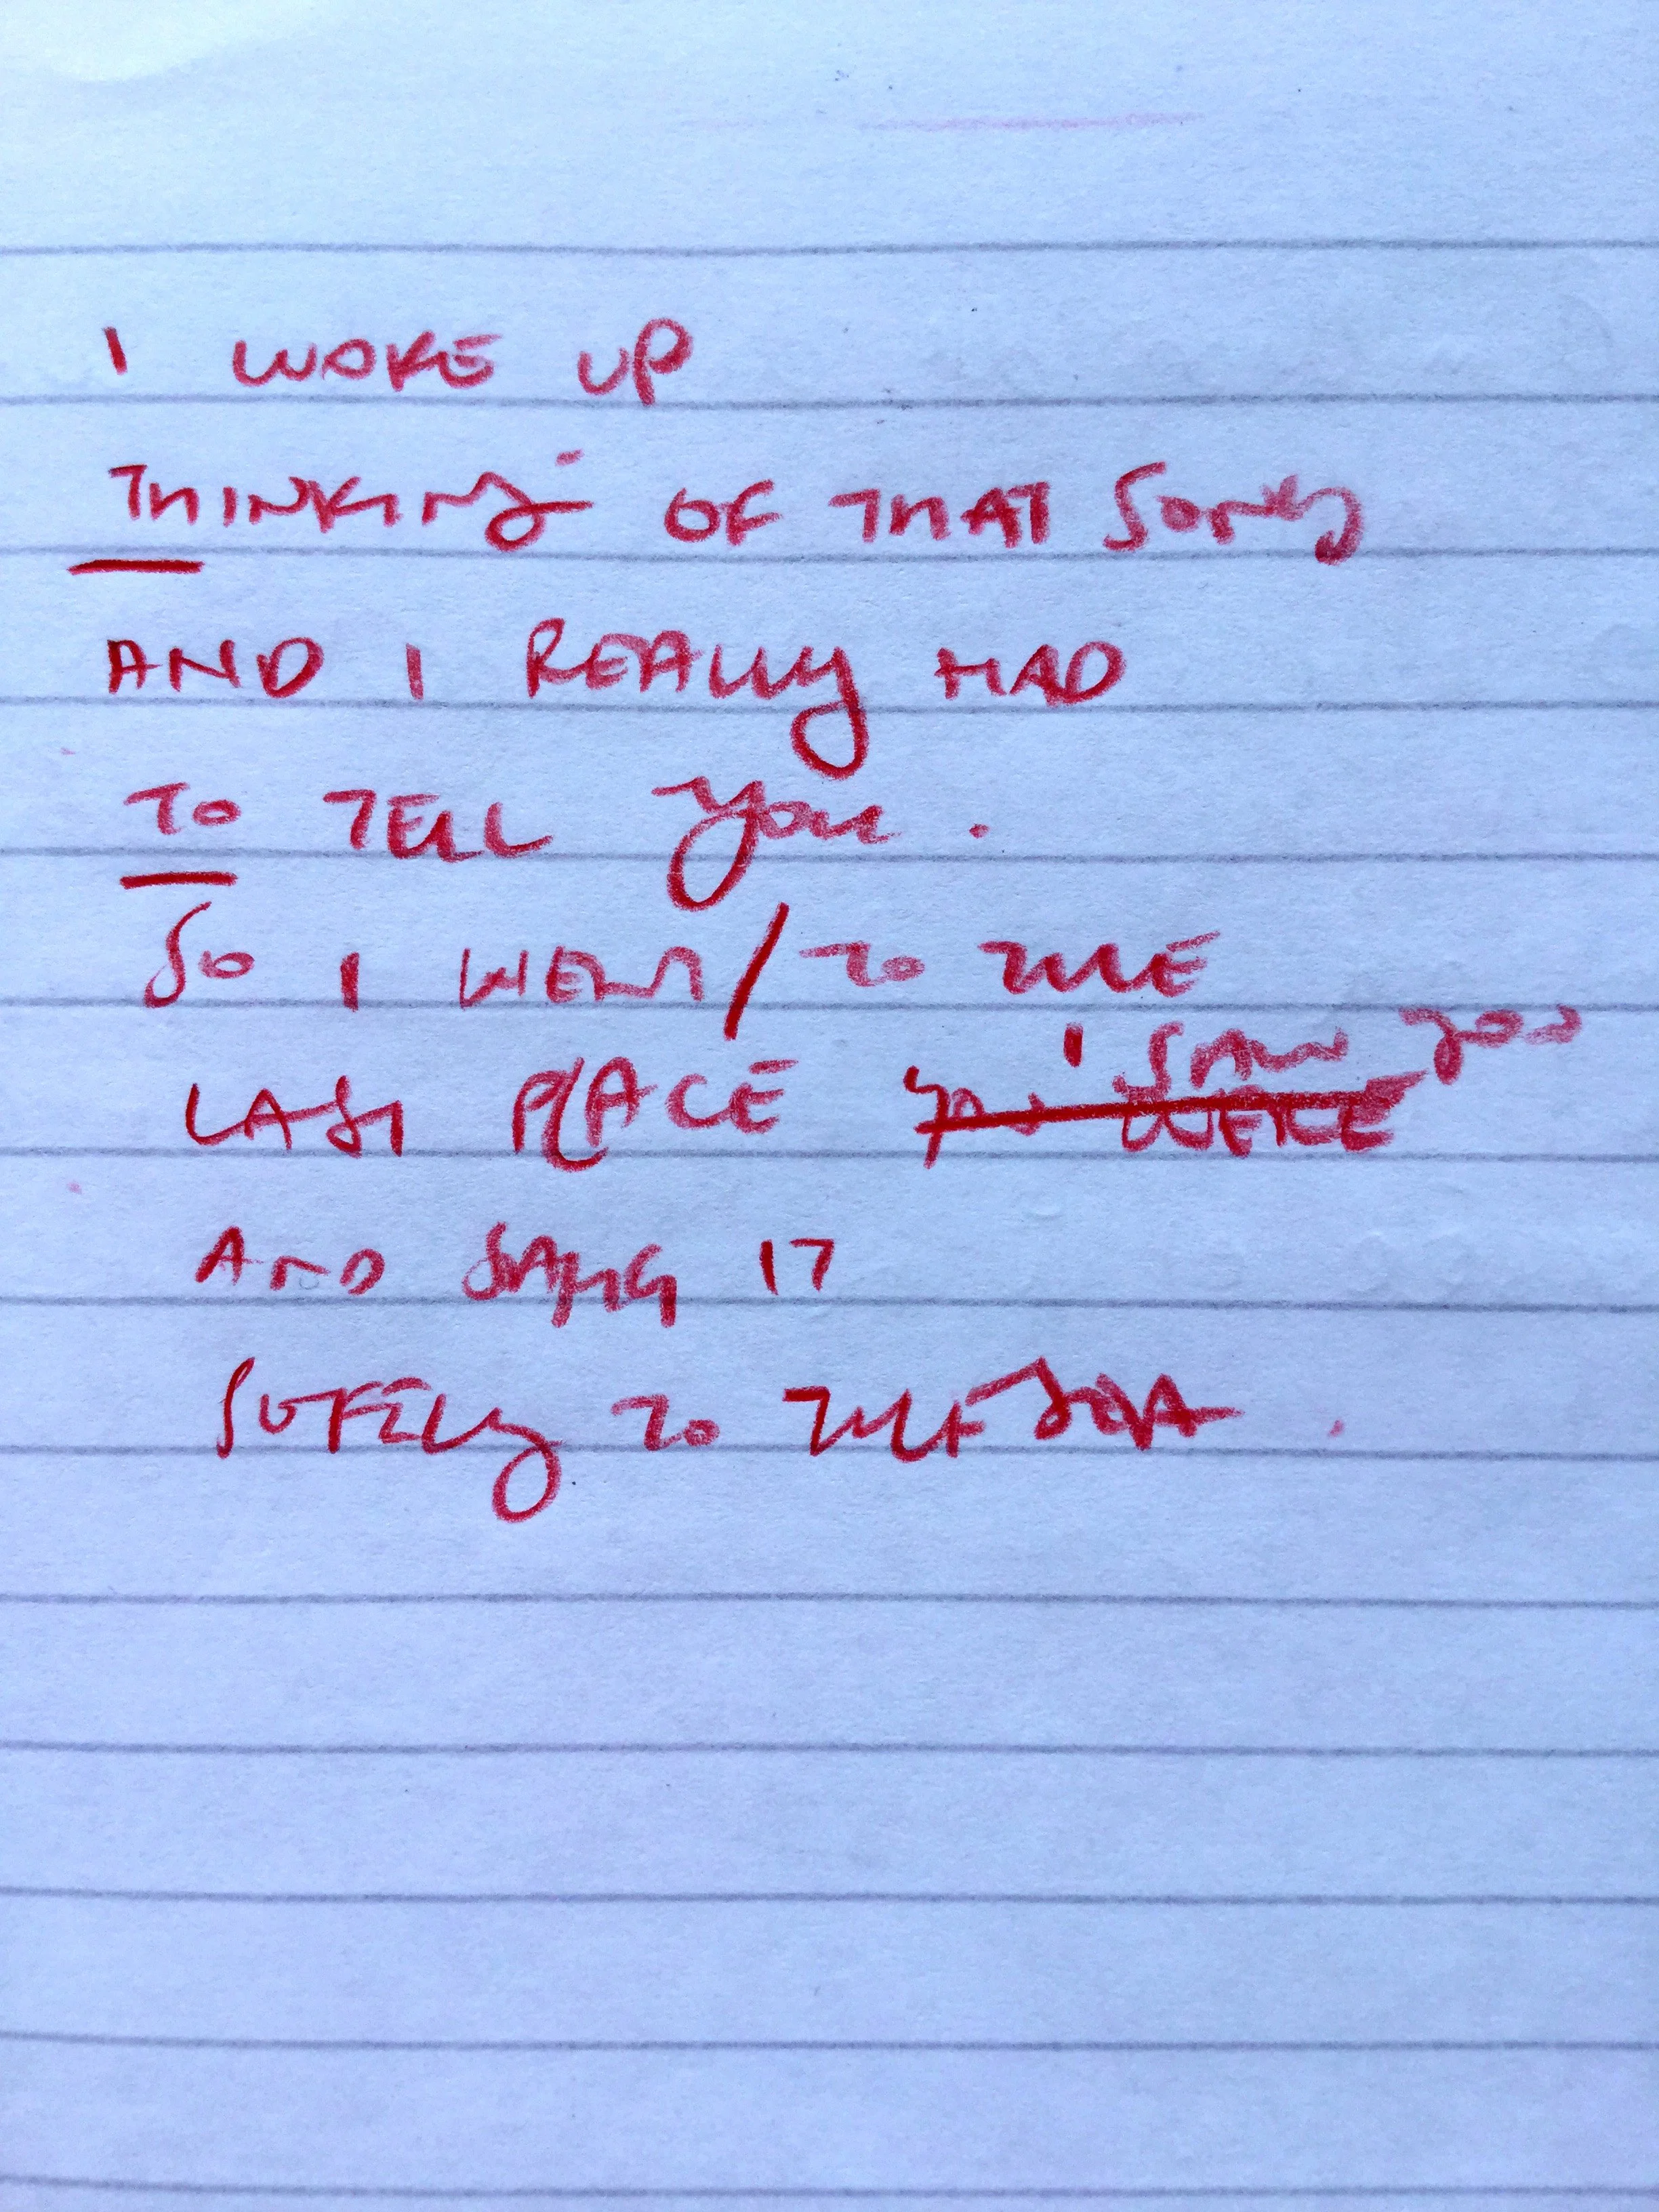 I WOKE UP
THINKING OF THAT SONG
AND I REALLY HAD
TO TELL YOU.
SO I WENT / TO THE
LAST PLACE YOU WERE I SAW YOU
AND SANG IT
SOFTLY TO THE SOFA.